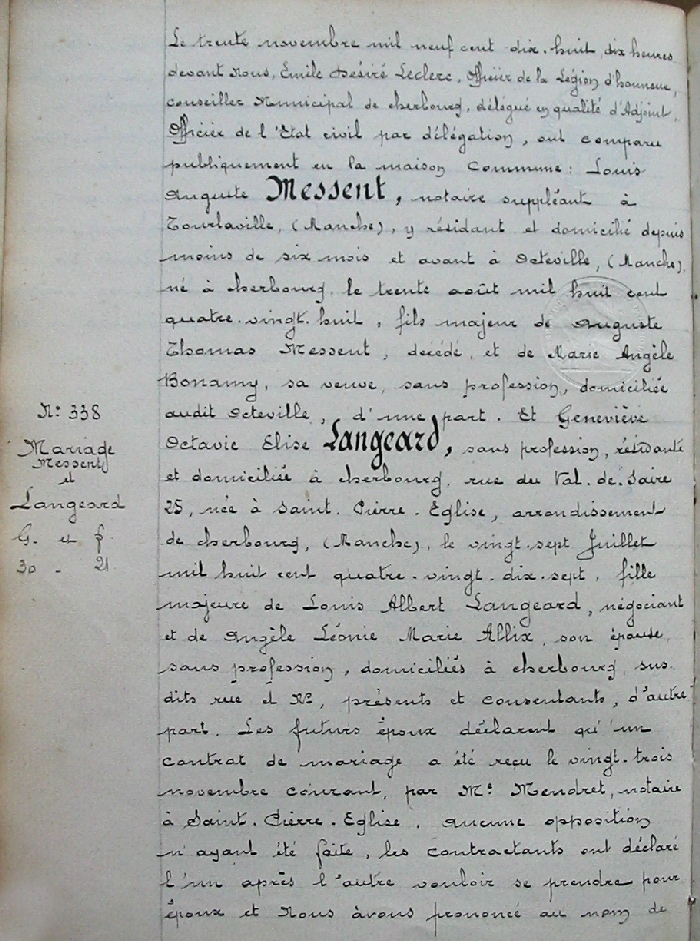 N° 338
Mariage
Messent
et
Langeard
G. et f.
30 - 21
Le trente novembre mil neuf cent dix-huit, dix heures
devant Nous, Emile Désiré Leclerc, Officier de la Légion d'honneur,
conseiller Municipal de cherbourg, délégué en qualité d'Adjoint,
Officier de l'Etat civil par délégation, ont comparu
publiquement en la maison Commune : Louis
Auguste Messent, notaire suppléant à
Tourlaville, (Manche), y résidant et domicilié depuis
moins de six mois et avant à Octeville, (Manche),
né à cherbourg, le trente août mil huit cent
quatre-vingt-huit, fils majeur de Auguste
Thomas Messent, décédé, et de Marie Angèle
Bonamy, sa veuve, sans profession, domiciliée
audit Octeville, d'une part. Et Geneviève
Octavie Elise Langeard, sans profession, résidante
et domiciliée à cherbourg, rue du Val-de-Saire
25, née à Saint-Pierre-Eglise, arrondissement
de cherbourg, (Manche), le vingt-sept Juillet
mil huit cent quatre-vingt-dix-sept, fille
majeure de Louis Albert Langeard, négociant
et de Angèle Léonie Marie Allix, son épouse,
sans profession, domiciliés à cherbourg, sus-
dits rue et N°, présents et consentants, d'autre
part. Les futurs époux déclarent qu'un
contrat de mariage a été reçu le vingt-trois
novembre courant, par Me Mendret, notaire
à Saint-Pierre-Eglise. Aucune opposition
n'ayant été faite, les contractants ont déclaré
l'un après l'autre vouloir se prendre pour
époux et Nous avons prononcé au nom de